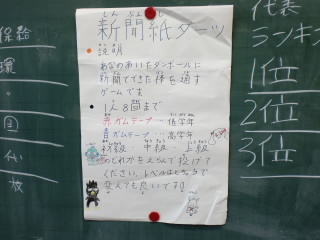 しんぶんし
新聞紙ダーツ
せつめい
説明
あなのあいたダンボールに
新聞でできた棒を通す
ゲームです
1人8回まで
赤ガムテープ…低学年
青ガムテープ…高学年
初級 中級 上級
のどれかをえらんで投げて
ください。レベルはとちゅうで
変えても良いです!
保給
環
国
代表
ランキン
1位
2位
3位